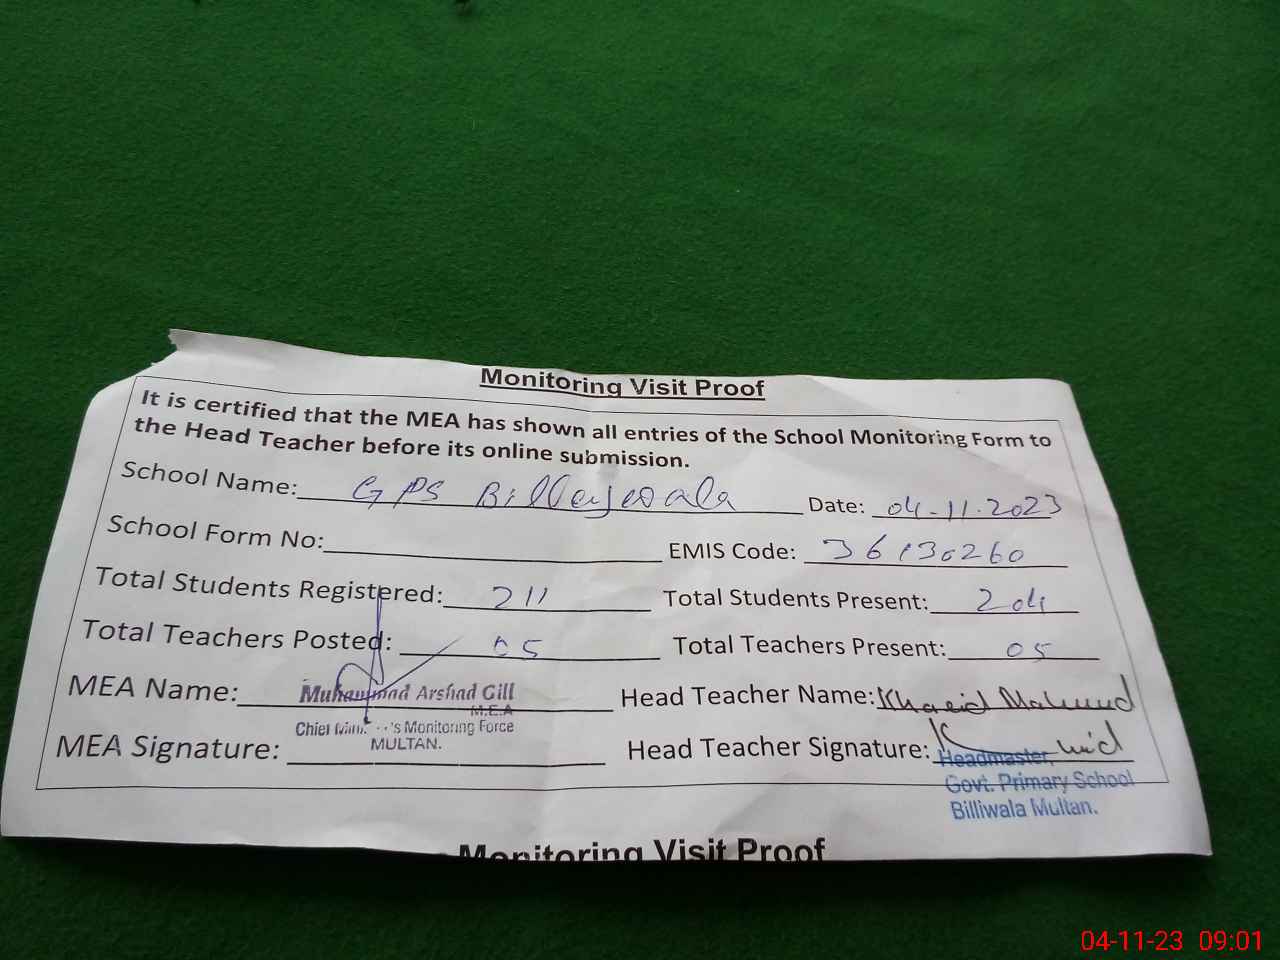 Monitoring Visit Proof
It is certified that the MEA has shown all entries of the School Monitoring Form to
the Head Teacher before its online submission.
School Name: GPS Date: 04-11-2023
School Form No: EMIS Code: 36130260
Total Students Registered: 211 Total Students Present: 204
Total Teachers Posted: 05 Total Teachers Present: 05
MEA Name: Muhammad Arshad Gill Head Teacher Name: Khalid Mahmud
M.E.A
Chief 's Monitoring Force
MULTAN.
MEA Signature: Head Teacher Signature:
Headmaster,
Govt. Primary School
Billiwala Multan.
Monitoring Visit Proof
04-11-23 09:01